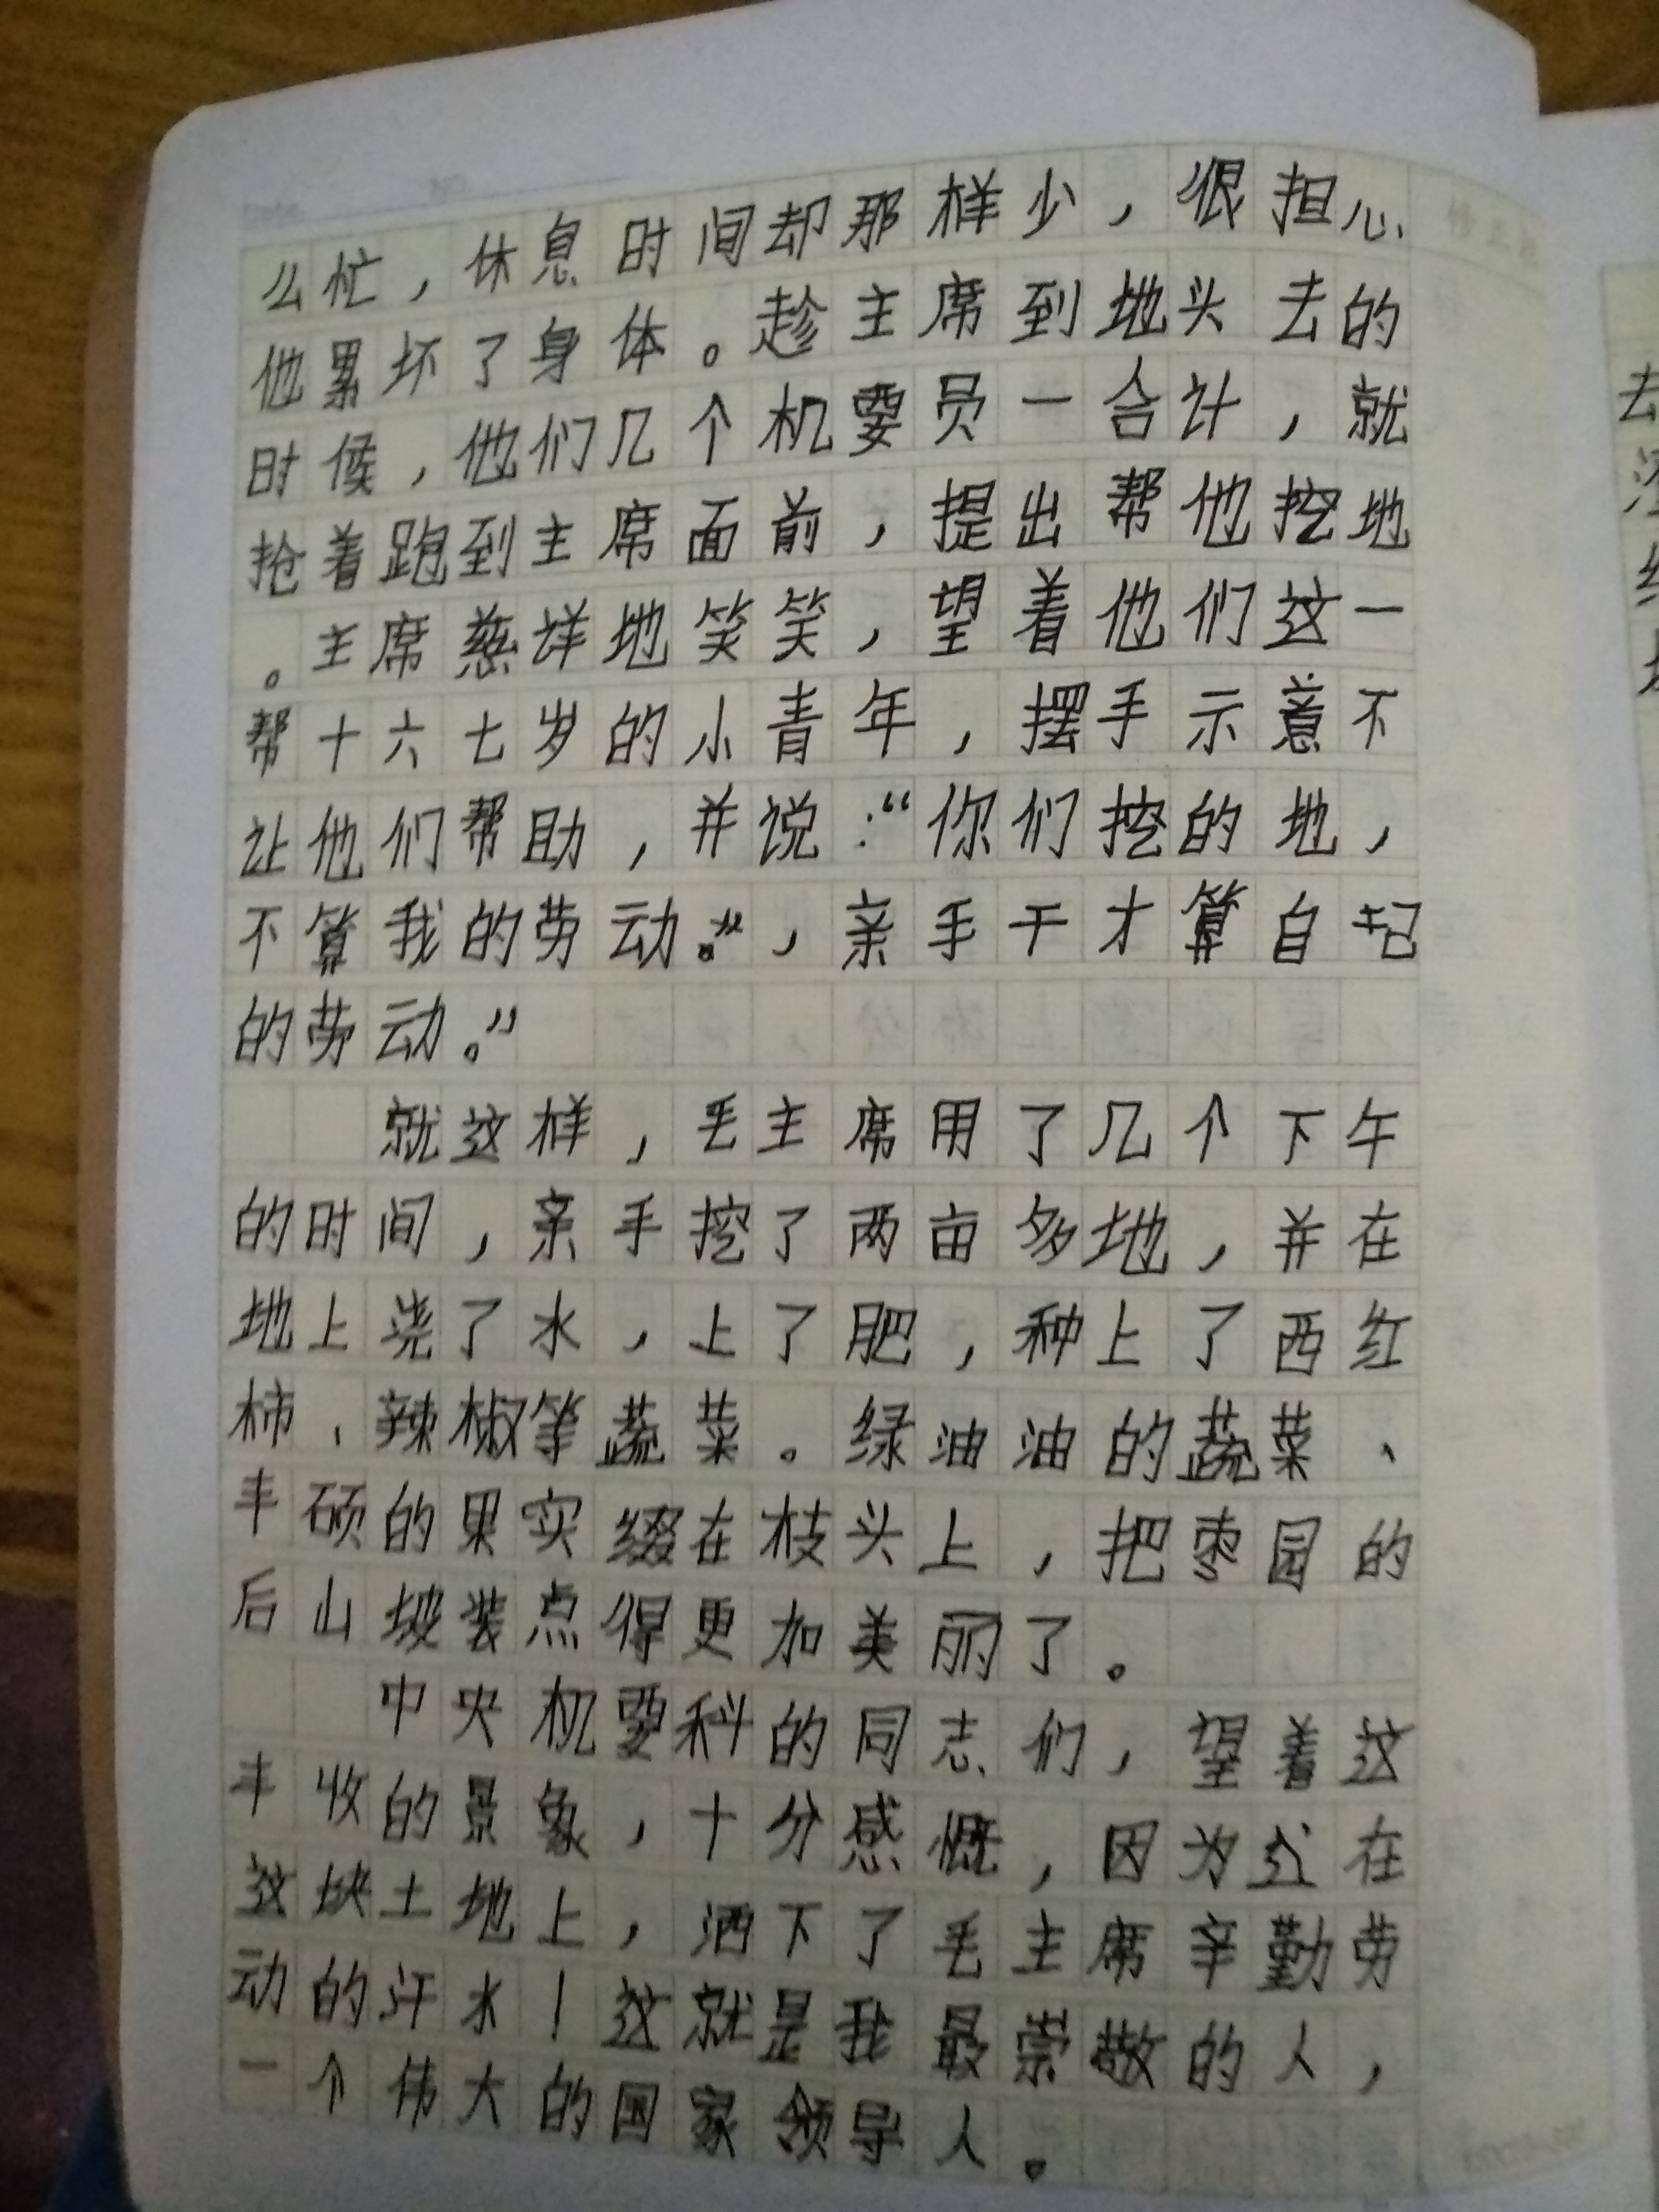 么忙，休息时间却那样少，很担心
他累坏了身体。趁主席到地头去的
时候，他们几个机要员一合计，就
抢着跑到主席面前，提出帮他挖地
。主席慈详地笑笑，望着他们这一
帮十六七岁的小青年，摆手示意不
让他们帮助，并说：“你们挖的地，
不算我的劳动。”，亲手干才算自己
的劳动。”
就这样，毛主席用了几个下午
的时间，亲手挖了两亩多地，并在
地上浇了水，上了肥，种上了西红
柿、辣椒等蔬菜。绿油油的蔬菜、
丰硕的果实缀在枝头上，把枣园的
后山坡装点得更加美丽了。
中央机要科的同志们，望着这
丰收的景象，十分感慨，因为在
这块土地上，洒下了毛主席辛勤劳
动的汗水！这就是我最崇敬的人，
一个伟大的国家领导人。
去